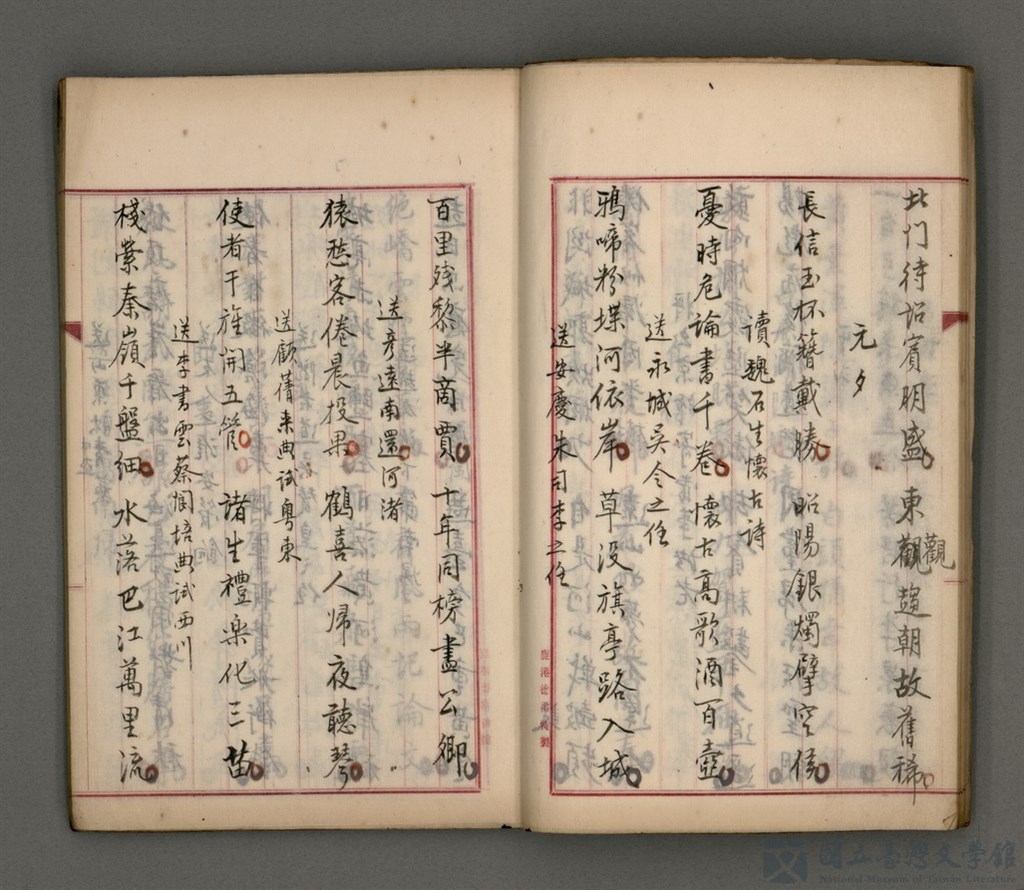 北门待詔賓朋盛東觀趍朝故舊稀
觀
元夕
長信玉杯簪戴勝昭陽銀燭擘空侯
讀魏石生懷古诗
憂時危論書千卷懷古高歌酒百壺
送永城吴令之任
鴉啼粉堞河依岸草没旗亭路入城
送安慶朱司李之任
百里残黎半商賈十年同榜盡公卿
送彦遠南還河渚
猿愁客倦晨投果鶴喜人帰夜聽琴
送顧蒨来典试粤東
使者干旌開五管諸生禮楽化三苗
送李書雲蔡閬培典试西川
棧縈秦嶺千盤細水落巴江萬里流
國立臺灣文學館
National Museum of Taiwan Literature